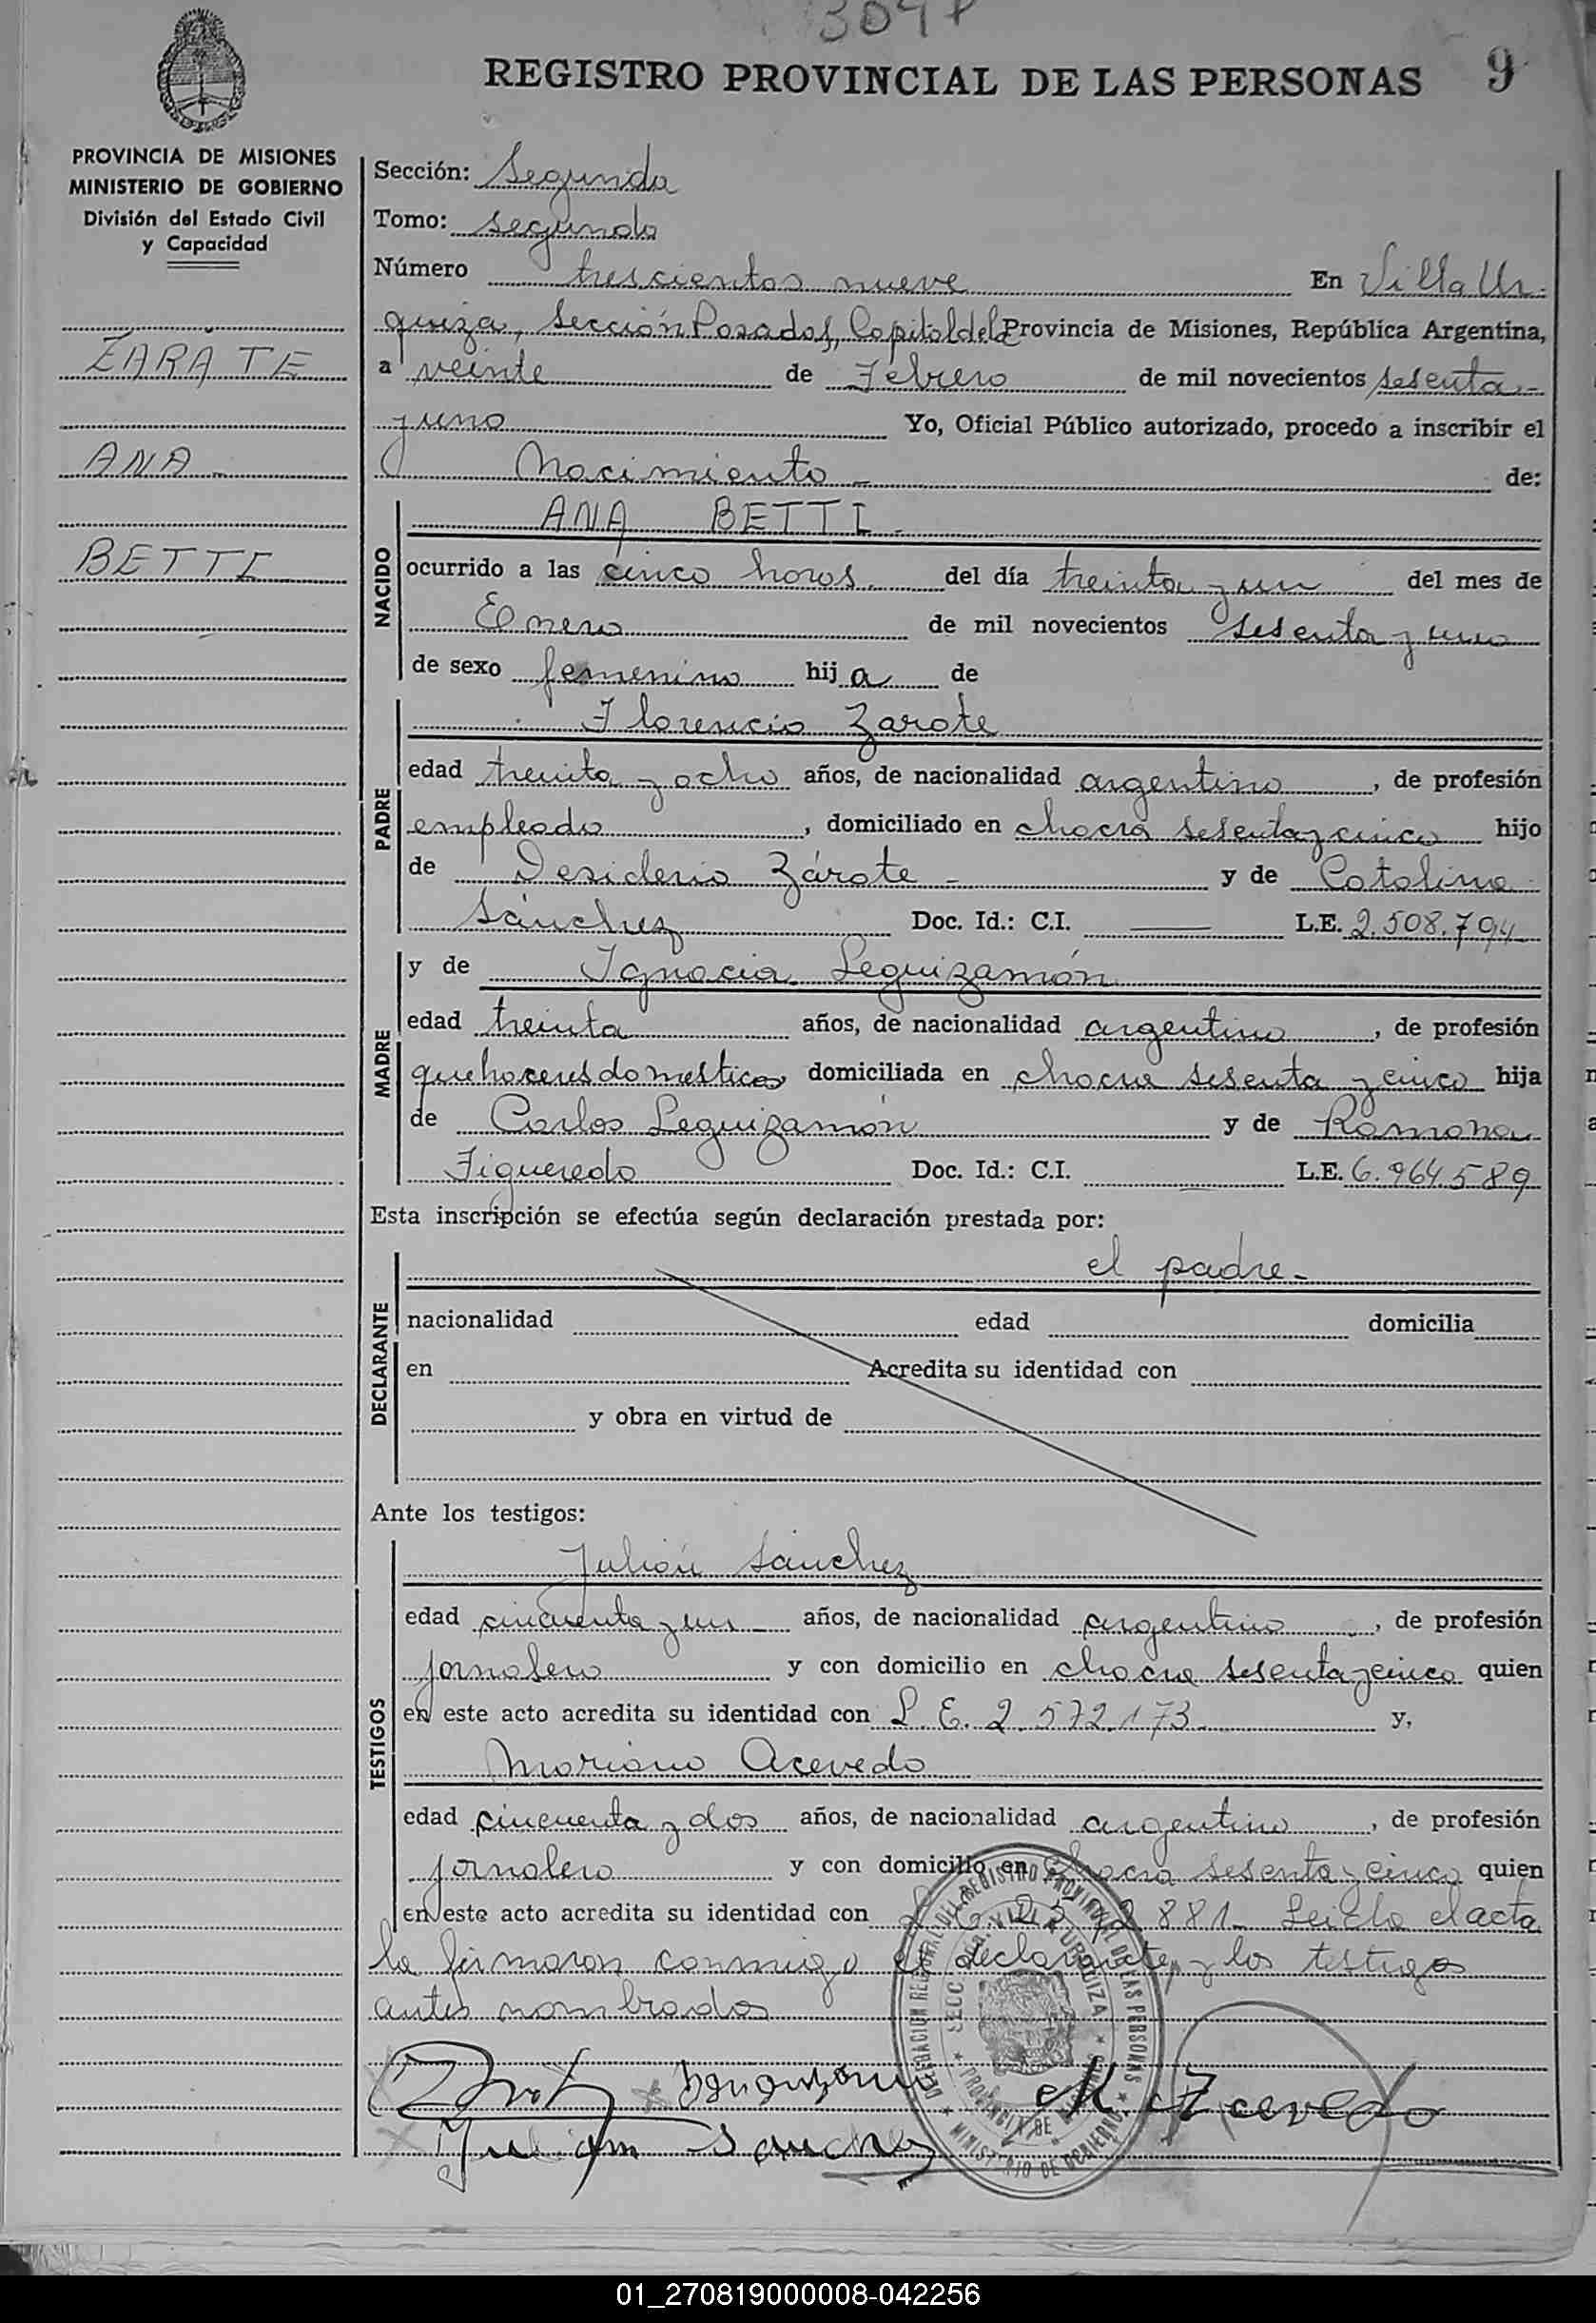 309
REGISTRO PROVINCIAL DE LAS PERSONAS 9
PROVINCIA DE MISIONES
MINISTERIO DE GOBIERNO
División del Estado Civil
y Capacidad
ZARATE
ANA
BETTI
Sección: Segunda
Tomo: segundo
Número trescientos nueve En Villa Ur-
quiza, Sección Posadas, Capital de la Provincia de Misiones, República Argentina,
a veinte de Febrero de mil novecientos sesenta
y uno Yo, Oficial Público autorizado, procedo a inscribir el
Nacimiento de:
NACIDO
ANA BETTI
ocurrido a las cinco horas del día treinta y un del mes de
Enero de mil novecientos sesenta y uno
de sexo femenino hija de
PADRE
Florencio Zarate
edad treinta y ocho años, de nacionalidad argentino, de profesión
empleado, domiciliado en chacra sesenta y cinco hijo
de Desiderio Zárate y de Catalina
Sánchez Doc. Id.: C.I. —— L.E. 2.508.794
MADRE
y de Ignacia Leguizamón
edad treinta años, de nacionalidad argentina, de profesión
quehaceres domesticos domiciliada en chacra sesenta y cinco hija
de Carlos Leguizamón y de Ramona
Figueredo Doc. Id.: C.I. L.E. 6.964.589
Esta inscripción se efectúa según declaración prestada por:
DECLARANTE
el padre-
nacionalidad edad domicilia
en Acredita su identidad con
y obra en virtud de
Ante los testigos:
TESTIGOS
Julián Sánchez
edad cincuenta y un años, de nacionalidad argentino, de profesión
jornalero y con domicilio en chacra sesenta y cinco quien
en este acto acredita su identidad con L.E. 2.572.173 y,
Mariano Acevedo
edad cincuenta y dos años, de nacionalidad argentino, de profesión
jornalero y con domicilio en chacra sesenta y cinco quien
en este acto acredita su identidad con 881- Leida el acta
la firmaron conmigo el declarante, y los testigos
antes nombrados
DELEGACION REGIONAL DEL REGISTRO PROVINCIAL DE LAS PERSONAS
MINISTERIO DE GOBIERNO
SECC. VILLA URQUIZA
PROVINCIA DE
M. Acevedo
Juliam Sanchez
01_270819000008-042256